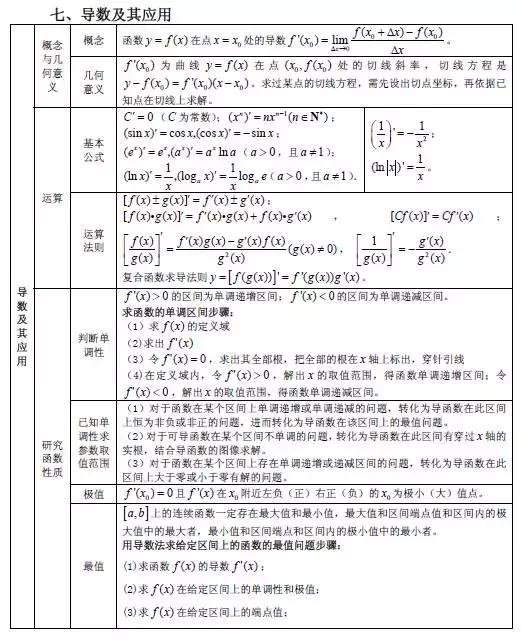 七、导数及其应用
导数及其应用
概念与几何意义
概念
函数 y = f(x) 在点 x = x₀ 处的导数 f'(x₀) = lim_{Δx→0} [f(x₀ + Δx) − f(x₀)] / Δx 。
几何意义
f'(x₀) 为曲线 y = f(x) 在点 (x₀, f(x₀)) 处的切线斜率，切线方程是
y − f(x₀) = f'(x₀)(x − x₀)。求过某点的切线方程，需先设出切点坐标，再依据已
知点在切线上求解。
运算
基本公式
C' = 0 （C 为常数）；(xⁿ)' = nxⁿ⁻¹(n ∈ N*)；
(sin x)' = cos x, (cos x)' = −sin x；
(eˣ)' = eˣ, (aˣ)' = aˣ ln a （a > 0，且 a ≠ 1）；
(ln x)' = 1/x, (logₐ x)' = (1/x) logₐ e（a > 0，且 a ≠ 1）.
(1/x)' = −1/x²；
(ln|x|)' = 1/x 。
运算法则
[f(x) ± g(x)]' = f'(x) ± g'(x)；
[f(x)•g(x)]' = f'(x)•g(x) + f(x)•g'(x) ， [Cf(x)]' = Cf'(x) ；
[f(x)/g(x)]' = [f'(x)g(x) − g'(x)f(x)] / g²(x) (g(x) ≠ 0)， [1/g(x)]' = −g'(x)/g²(x) .
复合函数求导法则 y = [f(g(x))]' = f'(g(x))g'(x) 。
研究函数性质
判断单调性
f'(x) > 0 的区间为单调递增区间；f'(x) < 0 的区间为单调递减区间。
求函数的单调区间步骤：
（1）求 f(x) 的定义域
(2)求出 f'(x)
（3）令 f'(x) = 0，求出其全部根，把全部的根在 x 轴上标出，穿针引线
（4)在定义域内，令 f'(x) > 0，解出 x 的取值范围，得函数单调递增区间；令
f'(x) < 0，解出 x 的取值范围，得函数单调递减区间。
已知单调性求参数取值范围
（1）对于函数在某个区间上单调递增或单调递减的问题，转化为导函数在此区间
上恒为非负或非正的问题，进而转化为导函数在该区间上的最值问题。
（2）对于可导函数在某个区间不单调的问题，转化为导函数在此区间有穿过 x 轴的
实根，结合导函数的图像求解。
（3）对于函数在某个区间上存在单调递增或递减区间的问题，转化为导函数在此
区间上大于零或小于零有解的问题。
极值
f'(x₀) = 0 且 f'(x) 在 x₀ 附近左负（正）右正（负）的 x₀ 为极小（大）值点。
最值
[a,b] 上的连续函数一定存在最大值和最小值，最大值和区间端点值和区间内的极
大值中的最大者，最小值和区间端点和区间内的极小值中的最小者。
用导数法求给定区间上的函数的最值问题步骤：
(1)求函数 f(x) 的导数 f'(x)；
(2)求 f(x) 在给定区间上的单调性和极值；
(3)求 f(x) 在给定区间上的端点值；